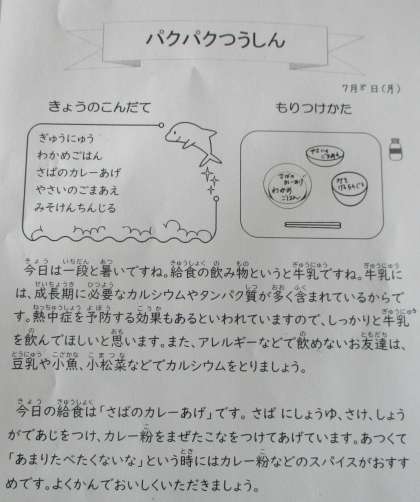 パクパクつうしん
7月8日(月)
きょうのこんだて
ぎゅうにゅう
わかめごはん
さばのカレーあげ
やさいのごまあえ
みそけんちんじる
もりつけかた
やさいの
ごまあえ
さばの
カレーあげ
わかめ
ごはん
みそ
けんちんじる
今日は一段と暑いですね。給食の飲み物というと牛乳ですね。牛乳に
は、成長期に必要なカルシウムやタンパク質が多く含まれているからで
す。熱中症を予防する効果もあるといわれていますので、しっかりと牛乳
を飲んでほしいと思います。また、アレルギーなどで飲めないお友達は、
豆乳や小魚、小松菜などでカルシウムをとりましょう。
今日の給食は「さばのカレーあげ」です。さば にしょうゆ、さけ、しょう
がであじをつけ、カレー粉をまぜたこなをつけてあげています。あつくて
「あまりたべたくないな」という時にはカレー粉などのスパイスがおすす
めです。よくかんでおいしくいただきましょう。